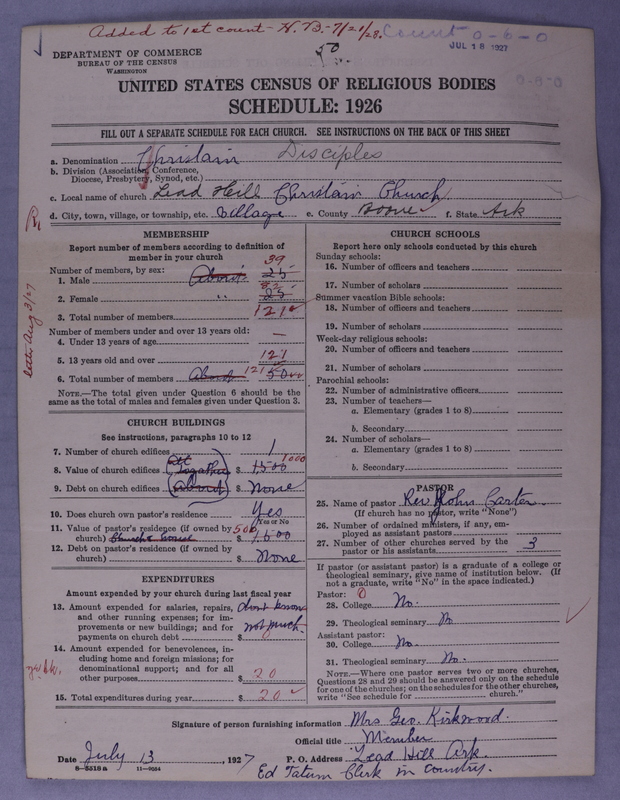 Added to 1st count - H.B. - 7/21/28. Count 0-6-0
JUL 18 1927
DEPARTMENT OF COMMERCE
BUREAU OF THE CENSUS
WASHINGTON
UNITED STATES CENSUS OF RELIGIOUS BODIES
SCHEDULE: 1926
FILL OUT A SEPARATE SCHEDULE FOR EACH CHURCH. SEE INSTRUCTIONS ON THE BACK OF THIS SHEET
a. Denomination Christain Disciples
b. Division (Association, Conference,
Diocese, Presbytery, Synod, etc.)
c. Local name of church Lead Hill Christain Church
d. City, town, village, or township, etc. Village e. County Boone f. State Ark
MEMBERSHIP
Report number of members according to definition of
member in your church
Number of members, by sex: 39
1. Male About 25
2. Female " 25
3. Total number of members 121
Number of members under and over 13 years old:
4. Under 13 years of age —
5. 13 years old and over 121
6. Total number of members About 121 50
NOTE.—The total given under Question 6 should be
same as the total of males and females given under Question 3.
CHURCH BUILDINGS
See instructions, paragraphs 10 to 12
7. Number of church edifices 1
8. Value of church edifices all together $ 1500 1000
9. Debt on church edifices about $ None
10. Does church own pastor's residence Yes
Yes or No
11. Value of pastor's residence (if owned by 500
church) $ 1500
12. Debt on pastor's residence (if owned by
church) $ None
EXPENDITURES
Amount expended by your church during last fiscal year
13. Amount expended for salaries, repairs, don't know
and other running expenses; for im-
provements or new buildings; and for not much.
payments on church debt $
14. Amount expended for benevolences, in-
cluding home and foreign missions; for
denominational support; and for all
other purposes $ 20
15. Total expenditures during year $ 20
CHURCH SCHOOLS
Report here only schools conducted by this church
Sunday schools:
16. Number of officers and teachers
17. Number of scholars
Summer vacation Bible schools:
18. Number of officers and teachers
19. Number of scholars
Week-day religious schools:
20. Number of officers and teachers
21. Number of scholars
Parochial schools:
22. Number of administrative officers
23. Number of teachers—
a. Elementary (grades 1 to 8)
b. Secondary
24. Number of scholars—
a. Elementary (grades 1 to 8)
b. Secondary
PASTOR
25. Name of pastor Rev John Carter
(If church has no pastor, write "None")
26. Number of ordained ministers, if any, em-
ployed as assistant pastors
27. Number of other churches served by the
pastor or his assistants 3
If pastor (or assistant pastor) is a graduate of a college or
theological seminary, give name of institution below. (If
not a graduate, write "No" in the space indicated.)
Pastor: 0
28. College No.
29. Theological seminary No
Assistant pastor:
30. College No.
31. Theological seminary No.
NOTE.—Where one pastor serves two or more churches,
Questions 28 and 29 should be answered only on the schedule
for one of the churches; on the schedules for the other churches,
write "See schedule for church."
Signature of person furnishing information Mrs Geo. Kirkwood.
Official title Member
Date July 13, 1927 P. O. Address Lead Hill Ark.
8—5518a 11—9034 Ed Tatum Clerk in country.
letter Aug 3/27